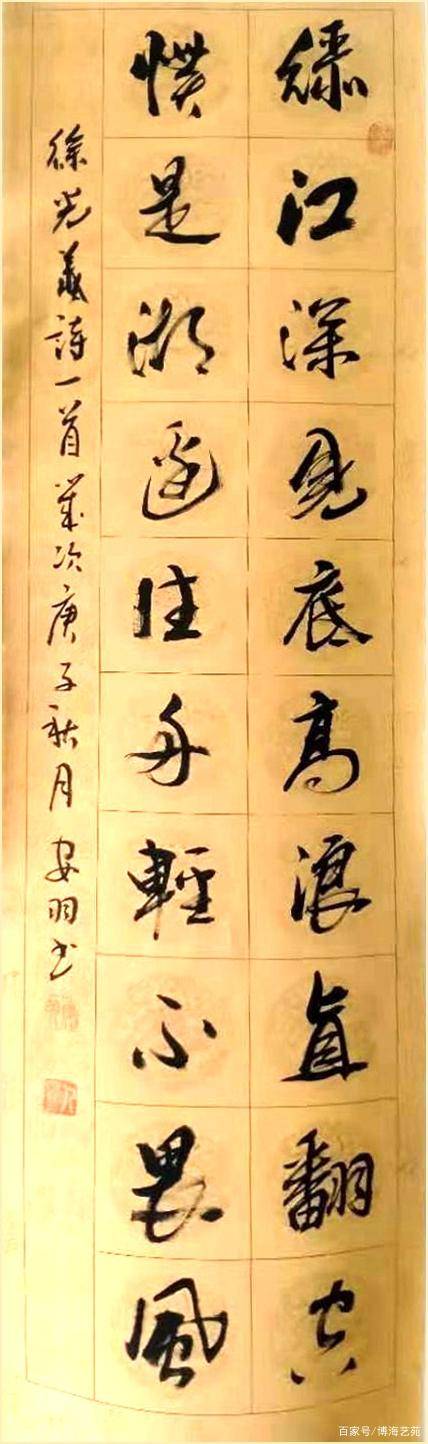 綠江深見底高浪直翻空
慣是湖邊住舟輕不畏風
徐光羲詩一首歲次庚子秋月安羽书
百家号/博海艺苑